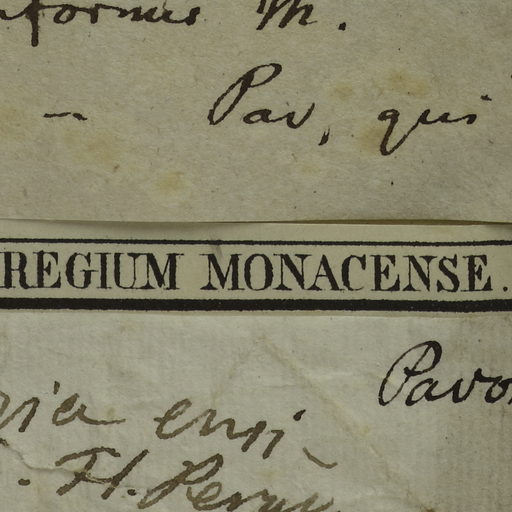 formis M.
- Pav, qui
REGIUM MONACENSE.
Pavo
ria ensi-
. Fl. Peruv